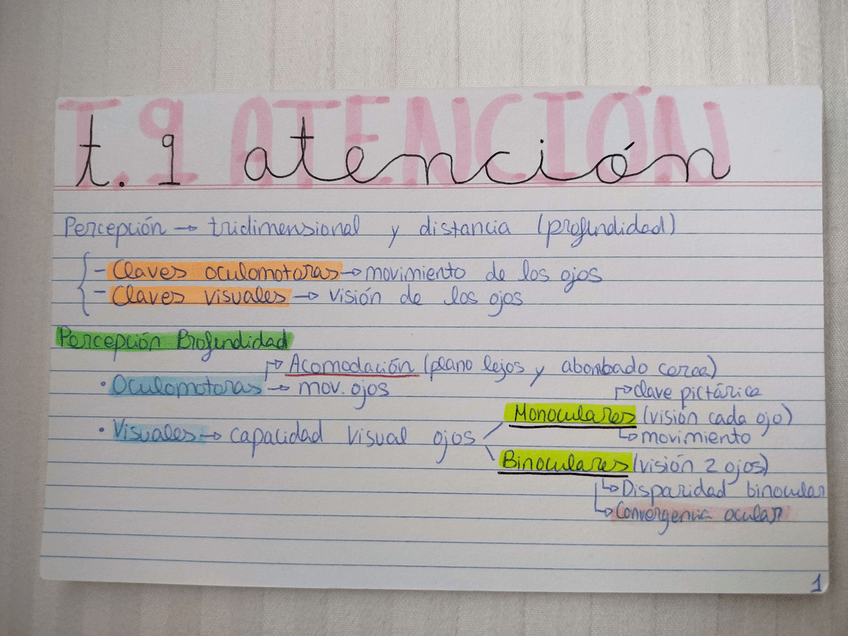 T.1 ATENCIÓN
t. 1 atención
Percepción → tridimensional y distancia (profundidad)
- Claves oculomotoras → movimiento de los ojos
- Claves visuales → visión de los ojos
Percepción Profundidad
Acomodación (plano lejos y abombado cerca)
• Oculomotoras → mov. ojos
clave pictórica
Monoculares (visión cada ojo)
• Visuales → capacidad visual ojos
movimiento
Binoculares (visión 2 ojos)
Disparidad binocular
Convergencia ocular
1